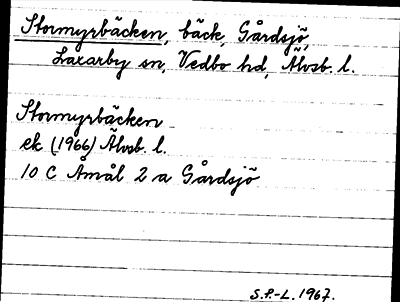 Stormyrbäcken, bäck, Gårdsjö,
Laxarby sn, Vedbo hd, Älvsb. l.
Stormyrbäcken
ek (1966) Älvsb. l.
10 C Åmål 2 a Gårdsjö
S.P.-L. 1967.